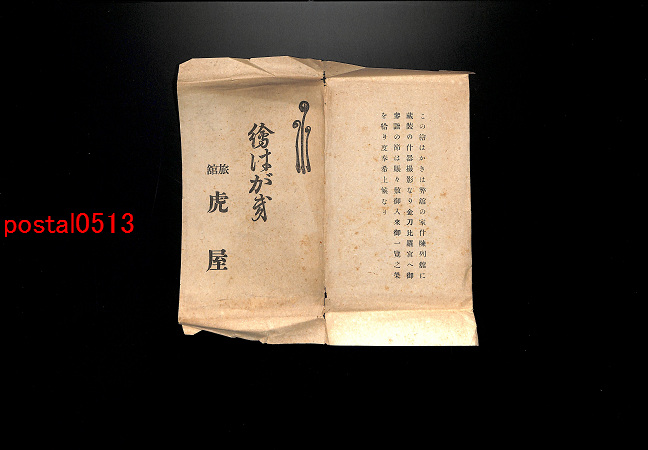 この繪はかきは弊舘の家什陳列舘に
藏裝の什器撮影なり金刀比羅宮へ御
參詣の節は賑々敷御入來御一覽之榮
を給り度奉希上候なり
繪はがき
旅舘
虎屋
postal0513